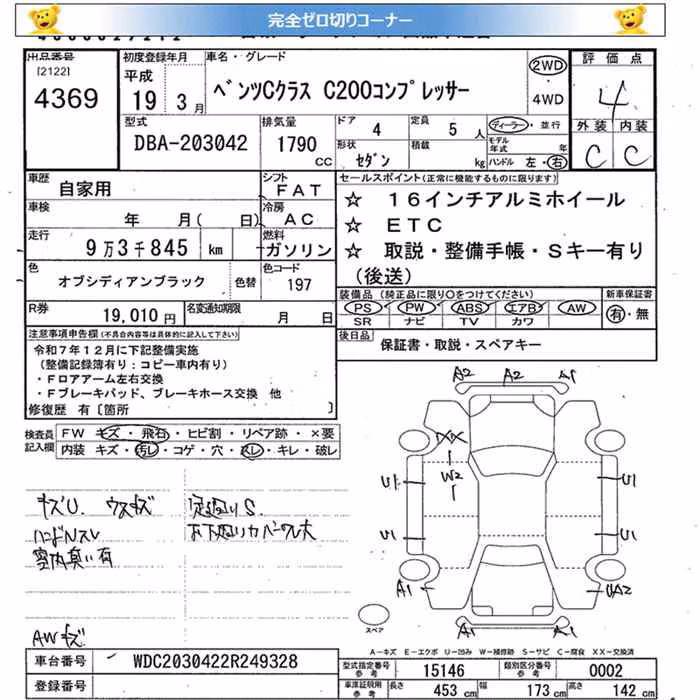 完全ゼロ切りコーナー
出品番号
[2122]
4369
初度登録年月
平成
19年 3月
車名・グレード
ベンツCクラス C200コンプレッサー
2WD
4WD
評価点
4
外装 内装
C C
型式
DBA-203042
排気量
1790
CC
ドア
4
定員
5人
形状
セダン
積載
kg
ディーラー・並行
モデル年式
年
ハンドル 左・右
車歴
自家用
シフト
FAT
車検
年 月( 日)
冷房
AC
走行
9万3千845 km
燃料
ガソリン
色
オブシディアンブラック
色替
色コード
197
R券
19,010円
名変通知期限
月 日
セールスポイント(正常に機能するものに限ります)
☆ 16インチアルミホイール
☆ ETC
☆ 取説・整備手帳・Sキー有り
(後送)
装備品 (純正品に限り〇をつけてください)
PS PW ABS エアB AW
SR ナビ TV カワ
新車保証書
有・無
後日品
保証書・取説・スペアキー
注意事項申告欄(不具合内容等は具体的に記入して下さい)
令和7年12月に下記整備実施
(整備記録簿有り:コピー車内有り)
・Fロアアーム左右交換
・Fブレーキパッド、ブレーキホース交換 他
修復歴 有〔箇所 〕
検査員記入欄
FW キズ・飛石・ヒビ割・リペア跡・×要
内装 キズ・汚レ・コゲ・穴・スレ・キレ・破レ
キズU. ウスキズ
ハンドルスレ
下廻りS.
AWキズ
A2 A2 A1
XX
W2
U1 U1
U1 U1
A1 UA2
A1 A1
スペア
A−キズ E−エクボ U−凹み W−補修跡 S−サビ C−腐食 XX−交換済
車台番号
WDC2030422R249328
登録番号
型式指定番号
参考
15146
類別区分番号
参考
0002
車庫証明用
参考
長さ
453 cm
幅
173 cm
高さ
142 cm